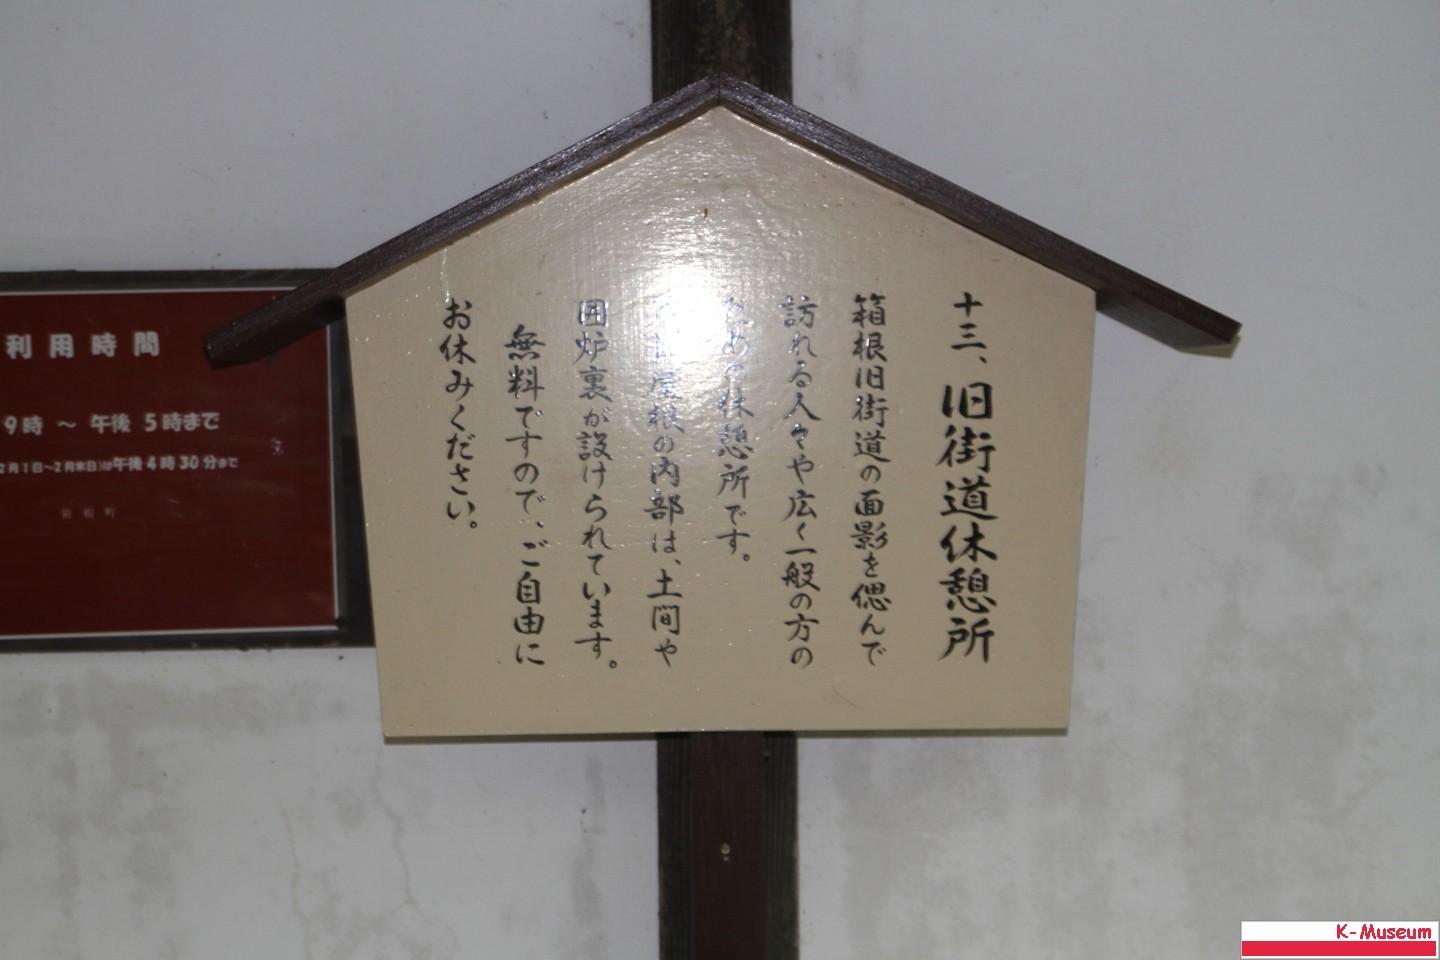 十三、旧街道休憩所
箱根旧街道の面影を偲んで
訪れる人々や広く一般の方の
ための休憩所です。
屋根の内部は、土間や
囲炉裏が設けられています。
無料ですので、ご自由に
お休みください。
利用時間
9時 ～ 午後 5時まで
2月1日～2月末日)は午後4時30分まで
箱根町
K-Museum